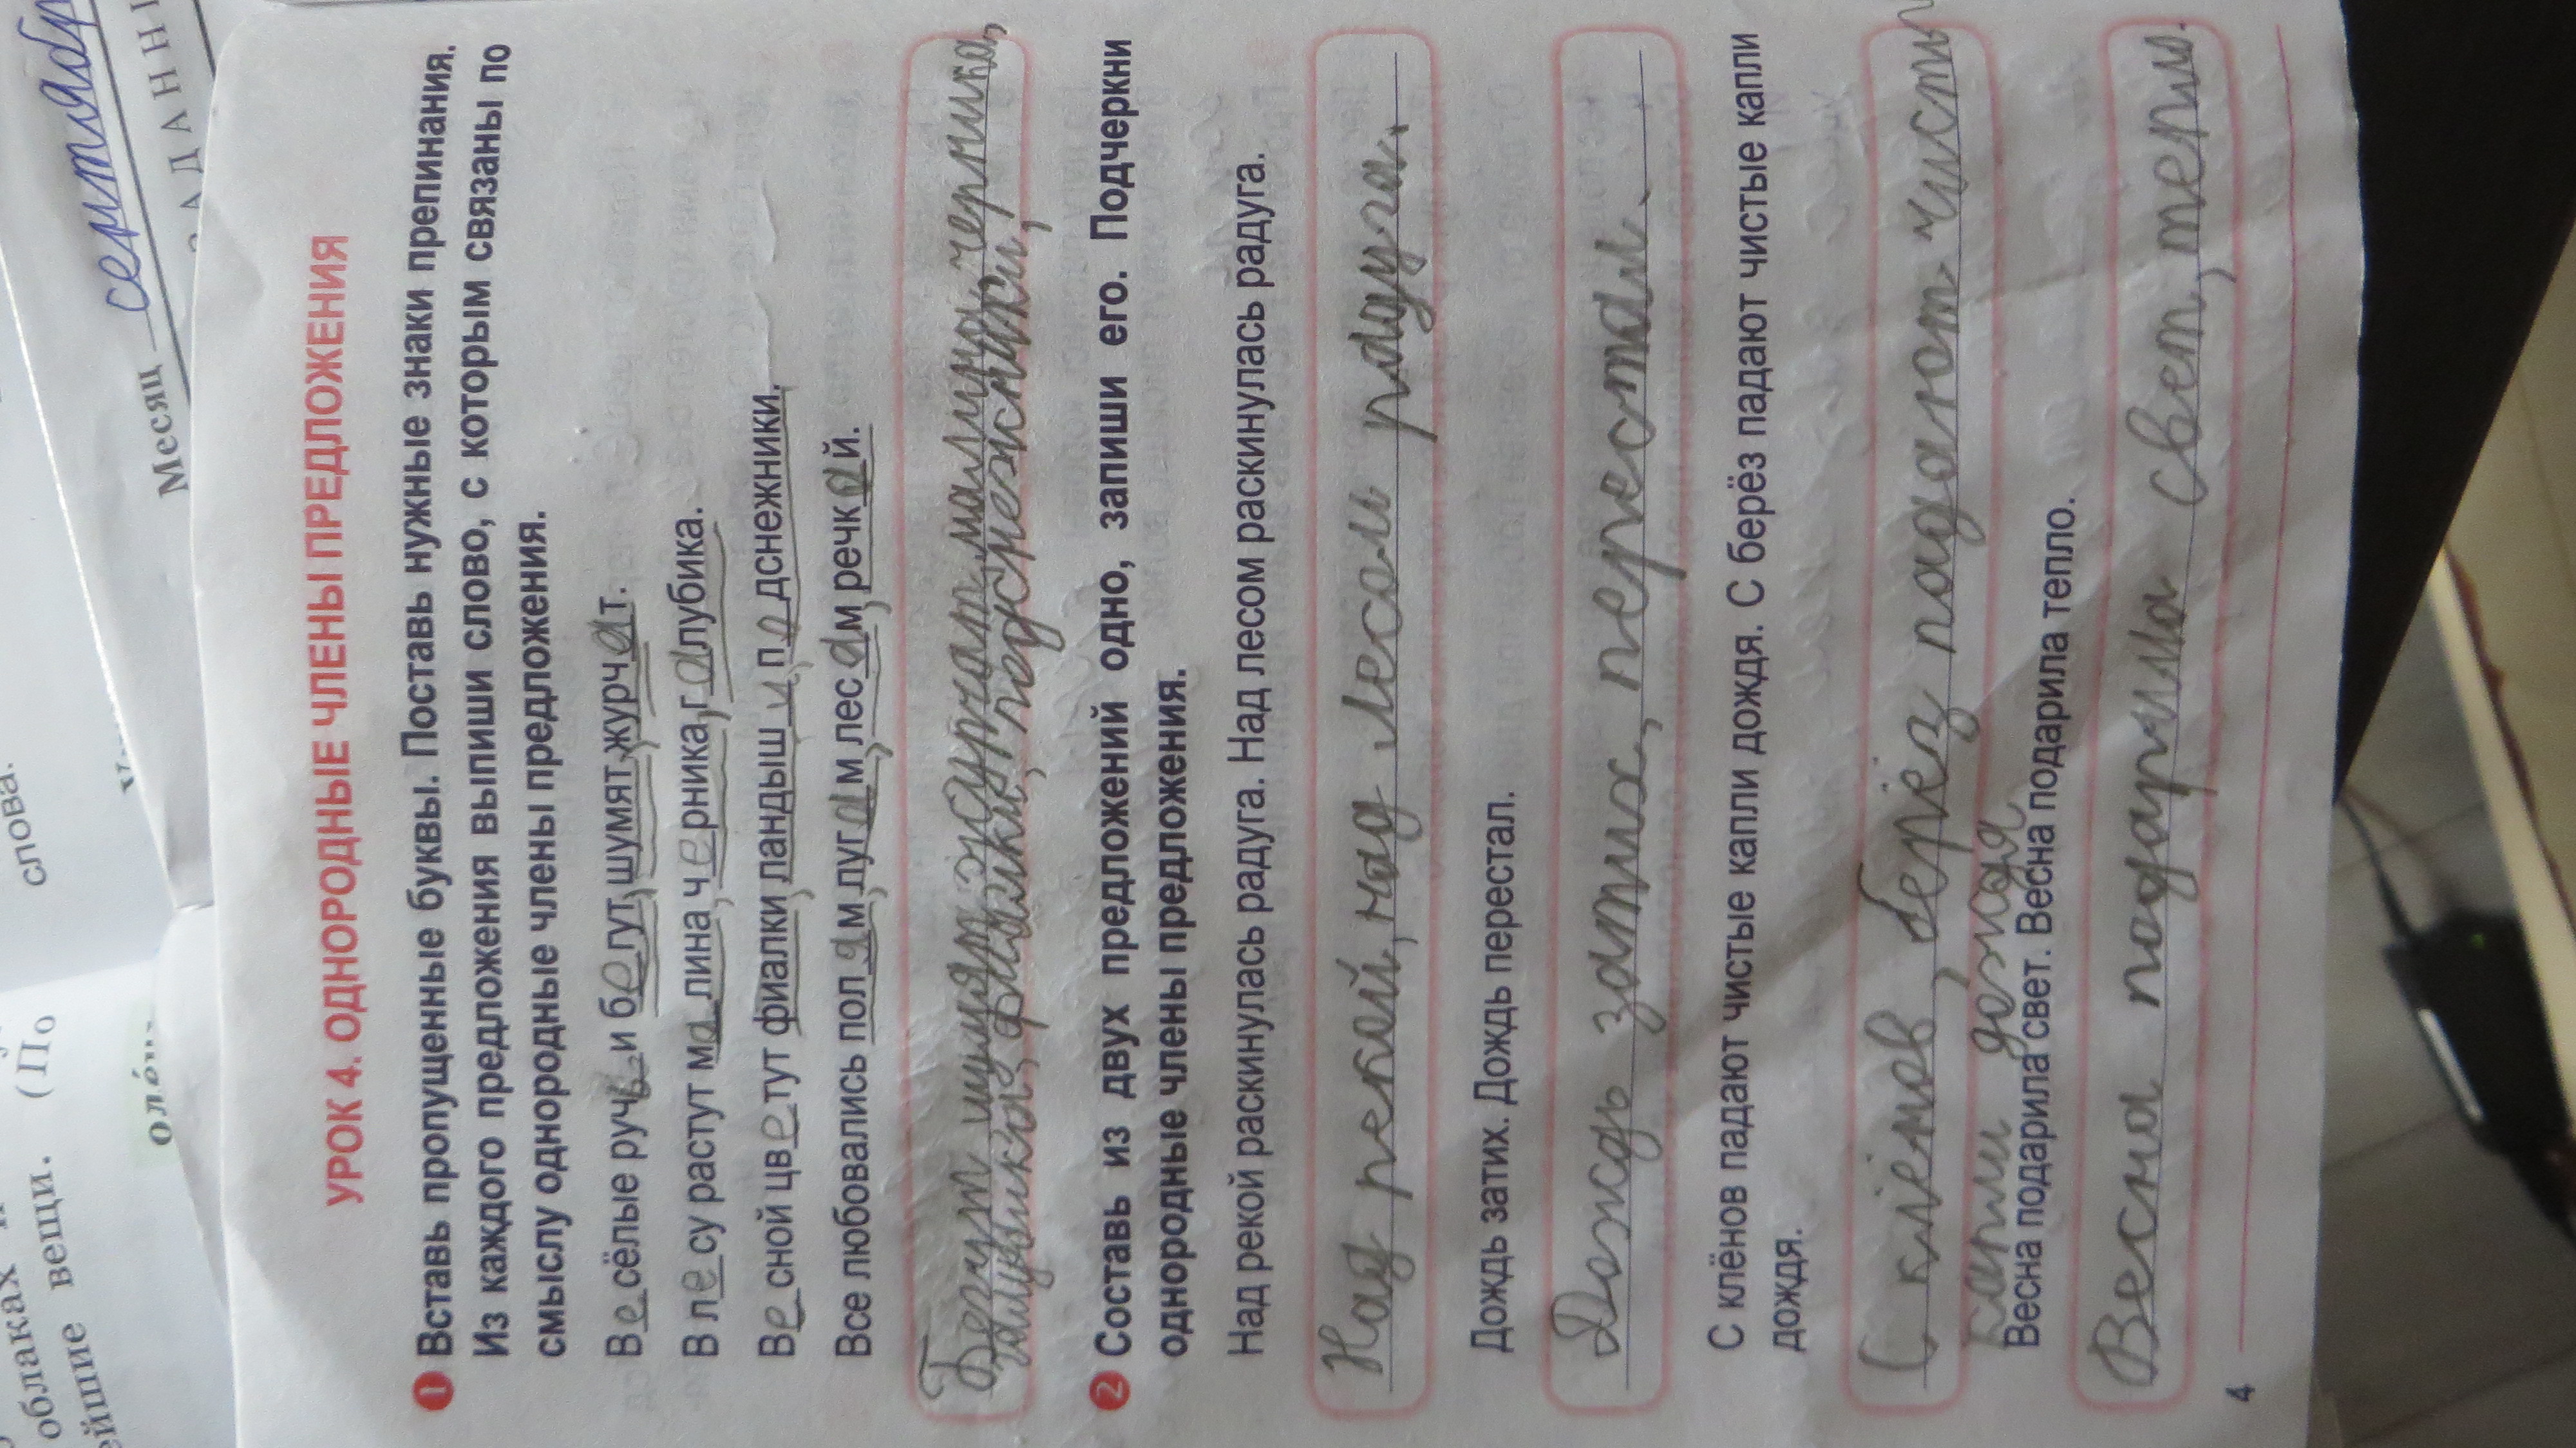 слова.
облаках
ейшие вещи. (По
Месяц сентябр
УРОК 4. ОДНОРОДНЫЕ ЧЛЕНЫ ПРЕДЛОЖЕНИЯ
1 Вставь пропущенные буквы. Поставь нужные знаки препинания.
Из каждого предложения выпиши слово, с которым связаны по
смыслу однородные члены предложения.
Весёлые ручьи бегут, шумят, журчат.
В лесу растут малина, черника, голубика.
Весной цветут фиалки, ландыши, подснежники.
Все любовались полям, лугам, лесам, речкой.
Бегут шумят журчат малина, черника,
голубика, фиалки, подснежники,
2 Составь из двух предложений одно, запиши его. Подчеркни
однородные члены предложения.
Над рекой раскинулась радуга. Над лесом раскинулась радуга.
Над рекой, над лесом радуга.
Дождь затих. Дождь перестал.
Дождь затих, перестал.
С клёнов падают чистые капли дождя. С берёз падают чистые капли
дождя.
С клёнов, берёз падают чисты
капли дождя
Весна подарила свет. Весна подарила тепло.
Весна подарила свет, тепло.
4